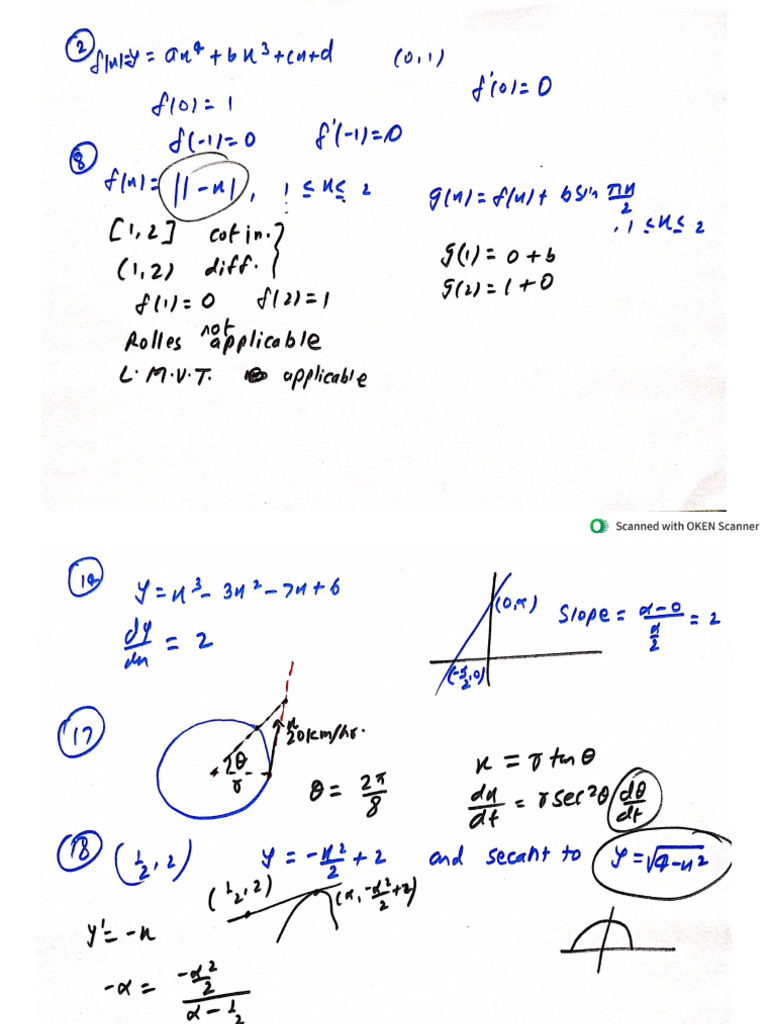 ② f(x)=y = ax⁴ + bx³ + cx + d (0,1)
f'(0) = 0
f(0) = 1
f(-1) = 0 f'(-1) = 0
⑧ f(x) = |1-x|, 1 ≤ x ≤ 2 g(x) = f(x) + b sin πx/2, 1 ≤ x ≤ 2
[1,2] cotin.
(1,2) diff.
g(1) = 0 + b
g(2) = 1 + 0
f(1) = 0 f(2) = 1
Rolles not applicable
L.M.V.T. applicable
Scanned with OKEN Scanner
y = x³ - 3x² - 7x + 6
dy/dx = 2
(0,α) Slope = (α-0)/(α/2) = 2
(-α/2, 0)
⑰
x
20km/hr.
2θ
r
θ = 2π/8
x = r tan θ
dx/dt = r sec²θ dθ/dt
⑱ (1/2, 2) y = -x²/2 + 2 and secant to y = √(4-x²)
(1/2, 2) (α, -α²/2 + 2)
y' = -x
-α = (-α²/2)/(α - 1/2)